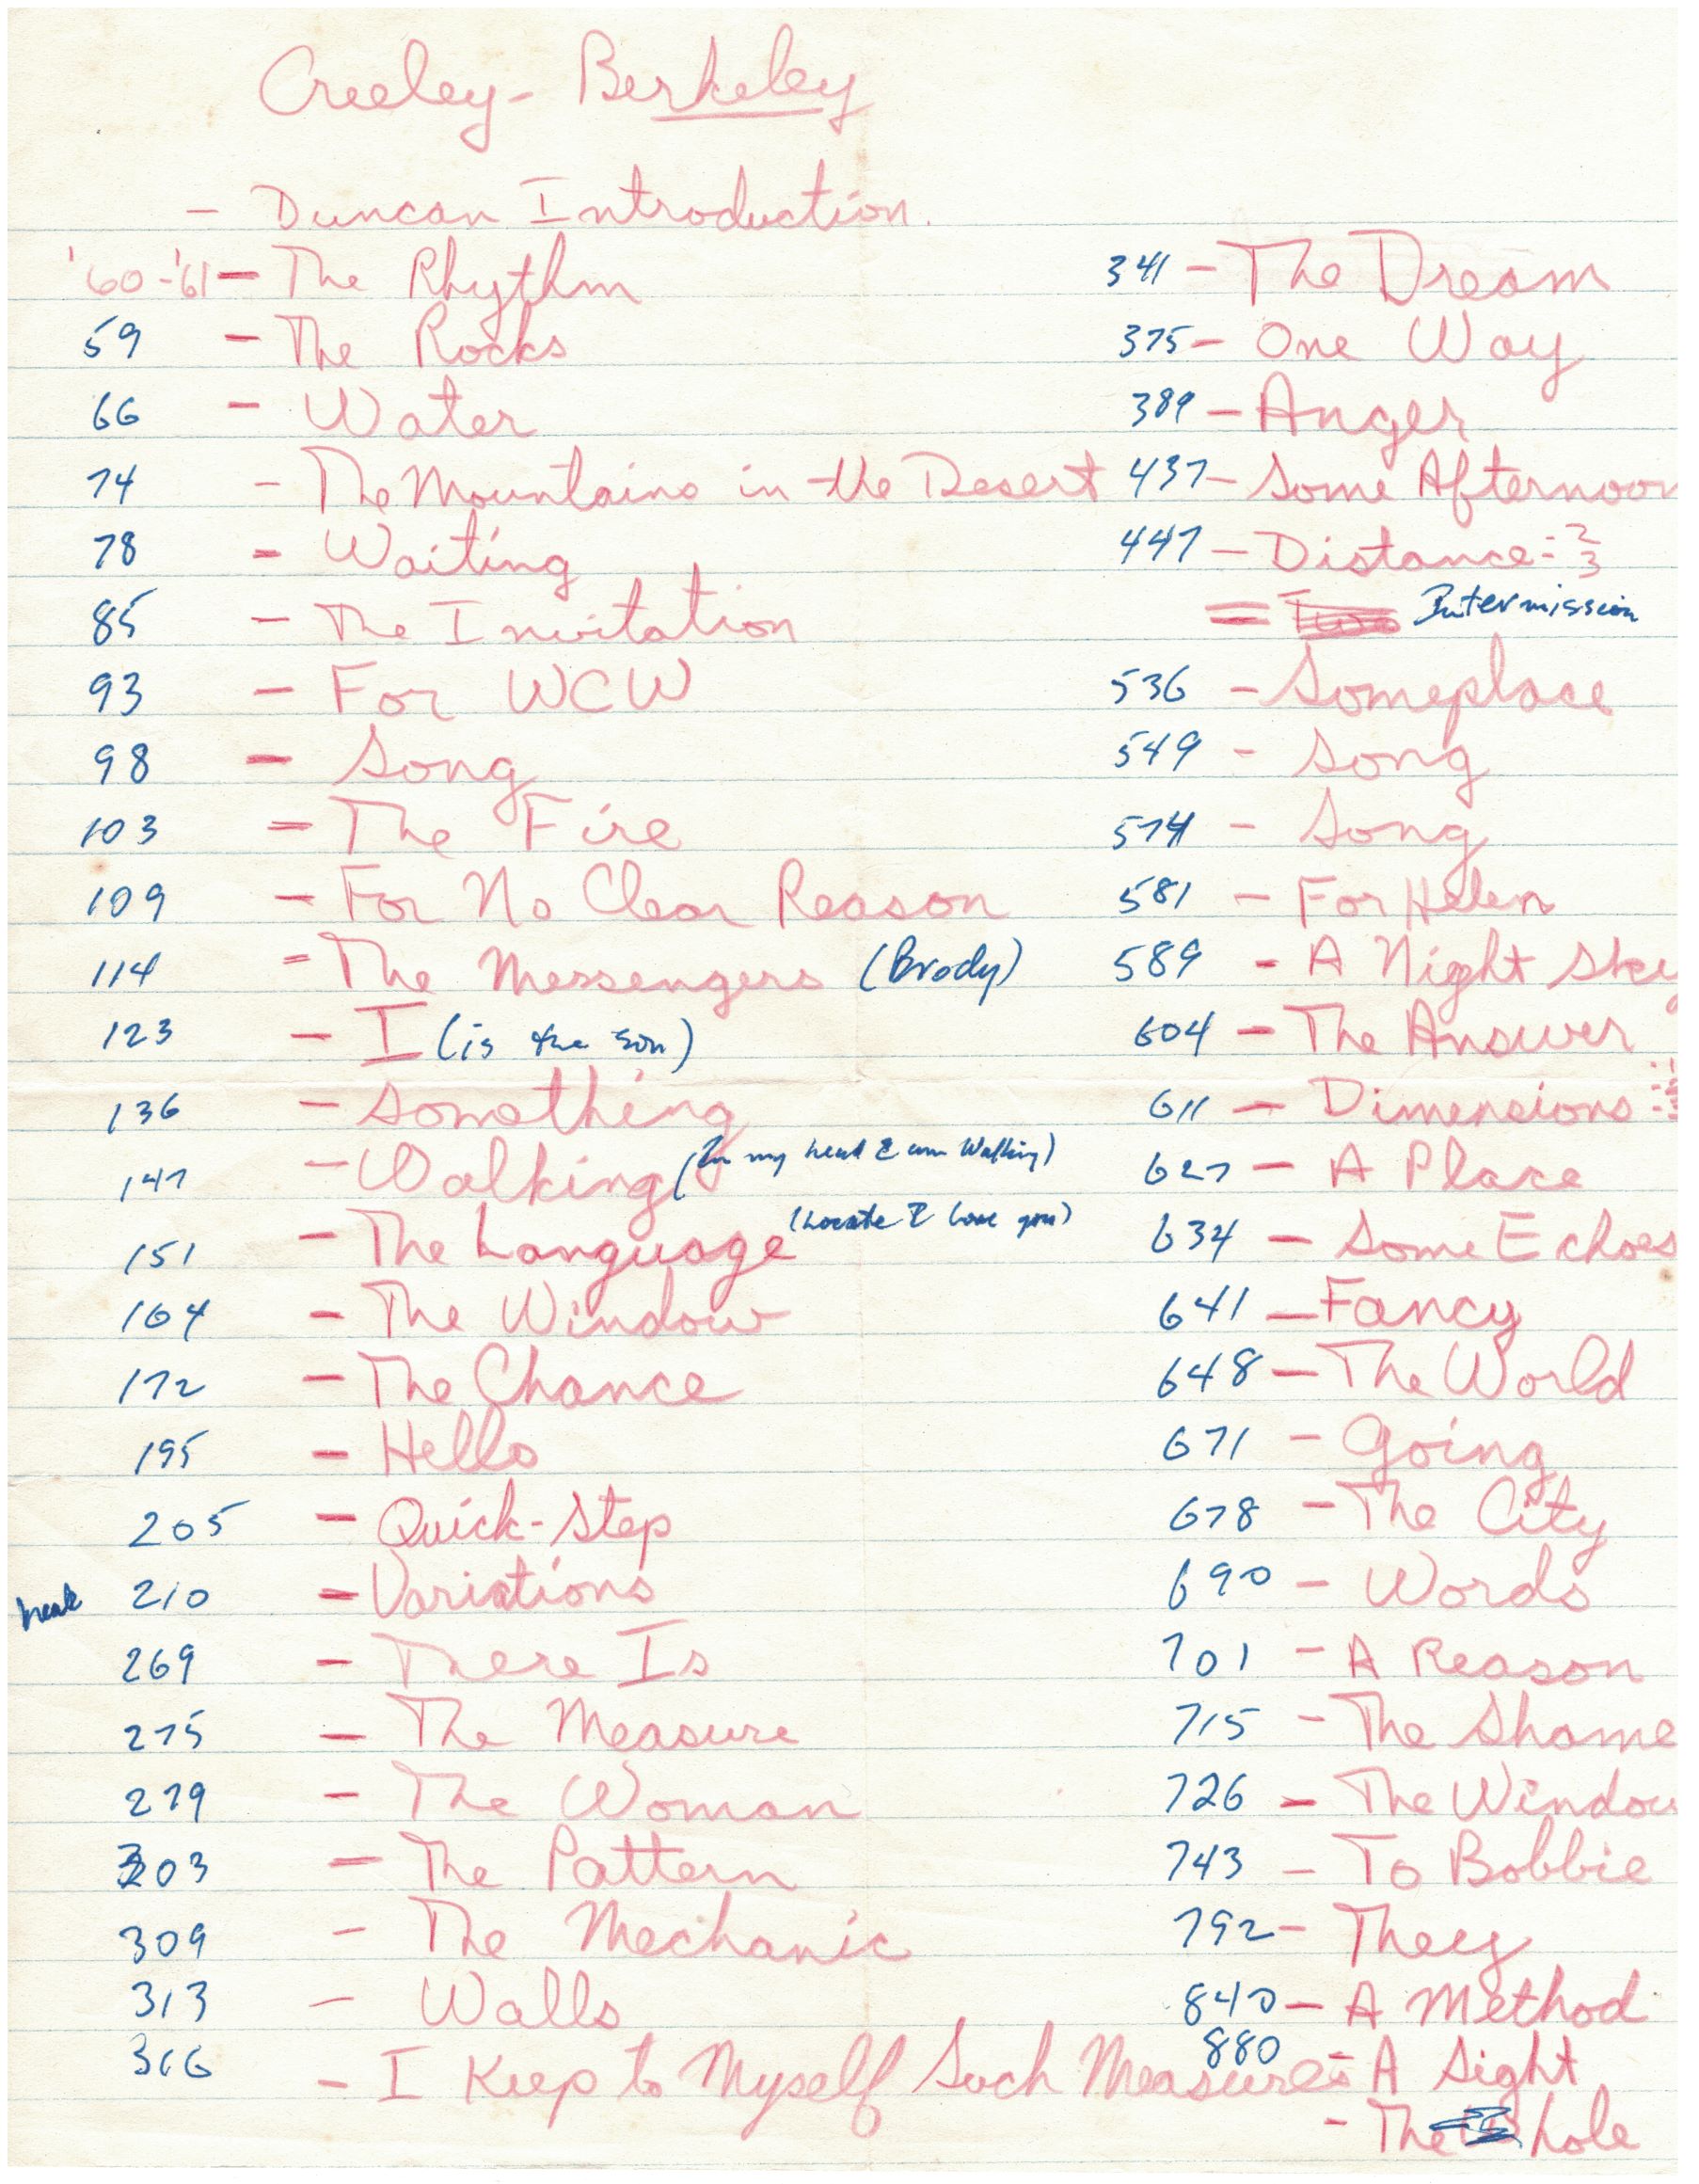 Creeley - Berkeley
- Duncan Introduction.
'60-'61 - The Rhythm
59 - The Rocks
66 - Water
74 - The Mountains in the Desert
78 - Waiting
85 - The Invitation
93 - For WCW
98 - Song
103 - The Fire
109 - For No Clear Reason
114 - The Messengers (Brody)
123 - I (is the son)
136 - Something
147 - Walking (In my head I am Walking)
151 - The Language (Locate I love you)
164 - The Window
172 - The Chance
195 - Hello
205 - Quick-Step
break 210 - Variations
269 - There Is
275 - The Measure
279 - The Woman
303 - The Pattern
309 - The Mechanic
313 - Walls
316 - I Keep to Myself Such Measures
341 - The Dream
375 - One Way
389 - Anger
437 - Some Afternoon
447 - Distance: 2 3
= Intermission
536 - Someplace
549 - Song
574 - Song
581 - For Helen
589 - A Night Sky
604 - The Answer
611 - Dimensions
627 - A Place
634 - Some Echoes
641 - Fancy
648 - The World
671 - Going
678 - The City
690 - Words
701 - A Reason
715 - The Shame
726 - The Window
743 - To Bobbie
792 - They
840 - A Method
880 - A Sight
- The hole